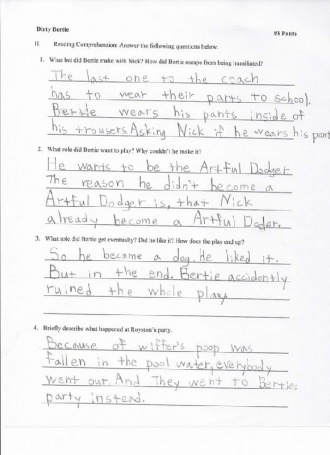 Dirty Bertie
#3 Pants
II. Reading Comprehension: Answer the following questions below.
1. What bet did Bertie make with Nick? How did Bertie escape from being humiliated?
The last one to the coach
has to wear their pants to school.
Bertie wears his pants inside of
his trousers. Asking Nick if he wears his pant
2. What role did Bertie want to play? Why couldn't he make it?
He wants to be the Artful Dodger
The reason he didn't become a
Artful Dodger is, that Nick
already become a Artful Doder.
3. What role did Bertie get eventually? Did he like it? How does the play end up?
So he became a dog. He liked it.
But in the end. Bertie accidontly
ruined the whole play.
4. Briefly describe what happened at Royston's party.
Because of wiffer's poop was
fallen in the pool water, everybody
went out. And They went to Berties
party instead.